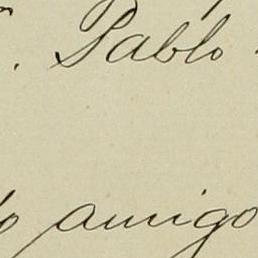 . Pablo
o amigo